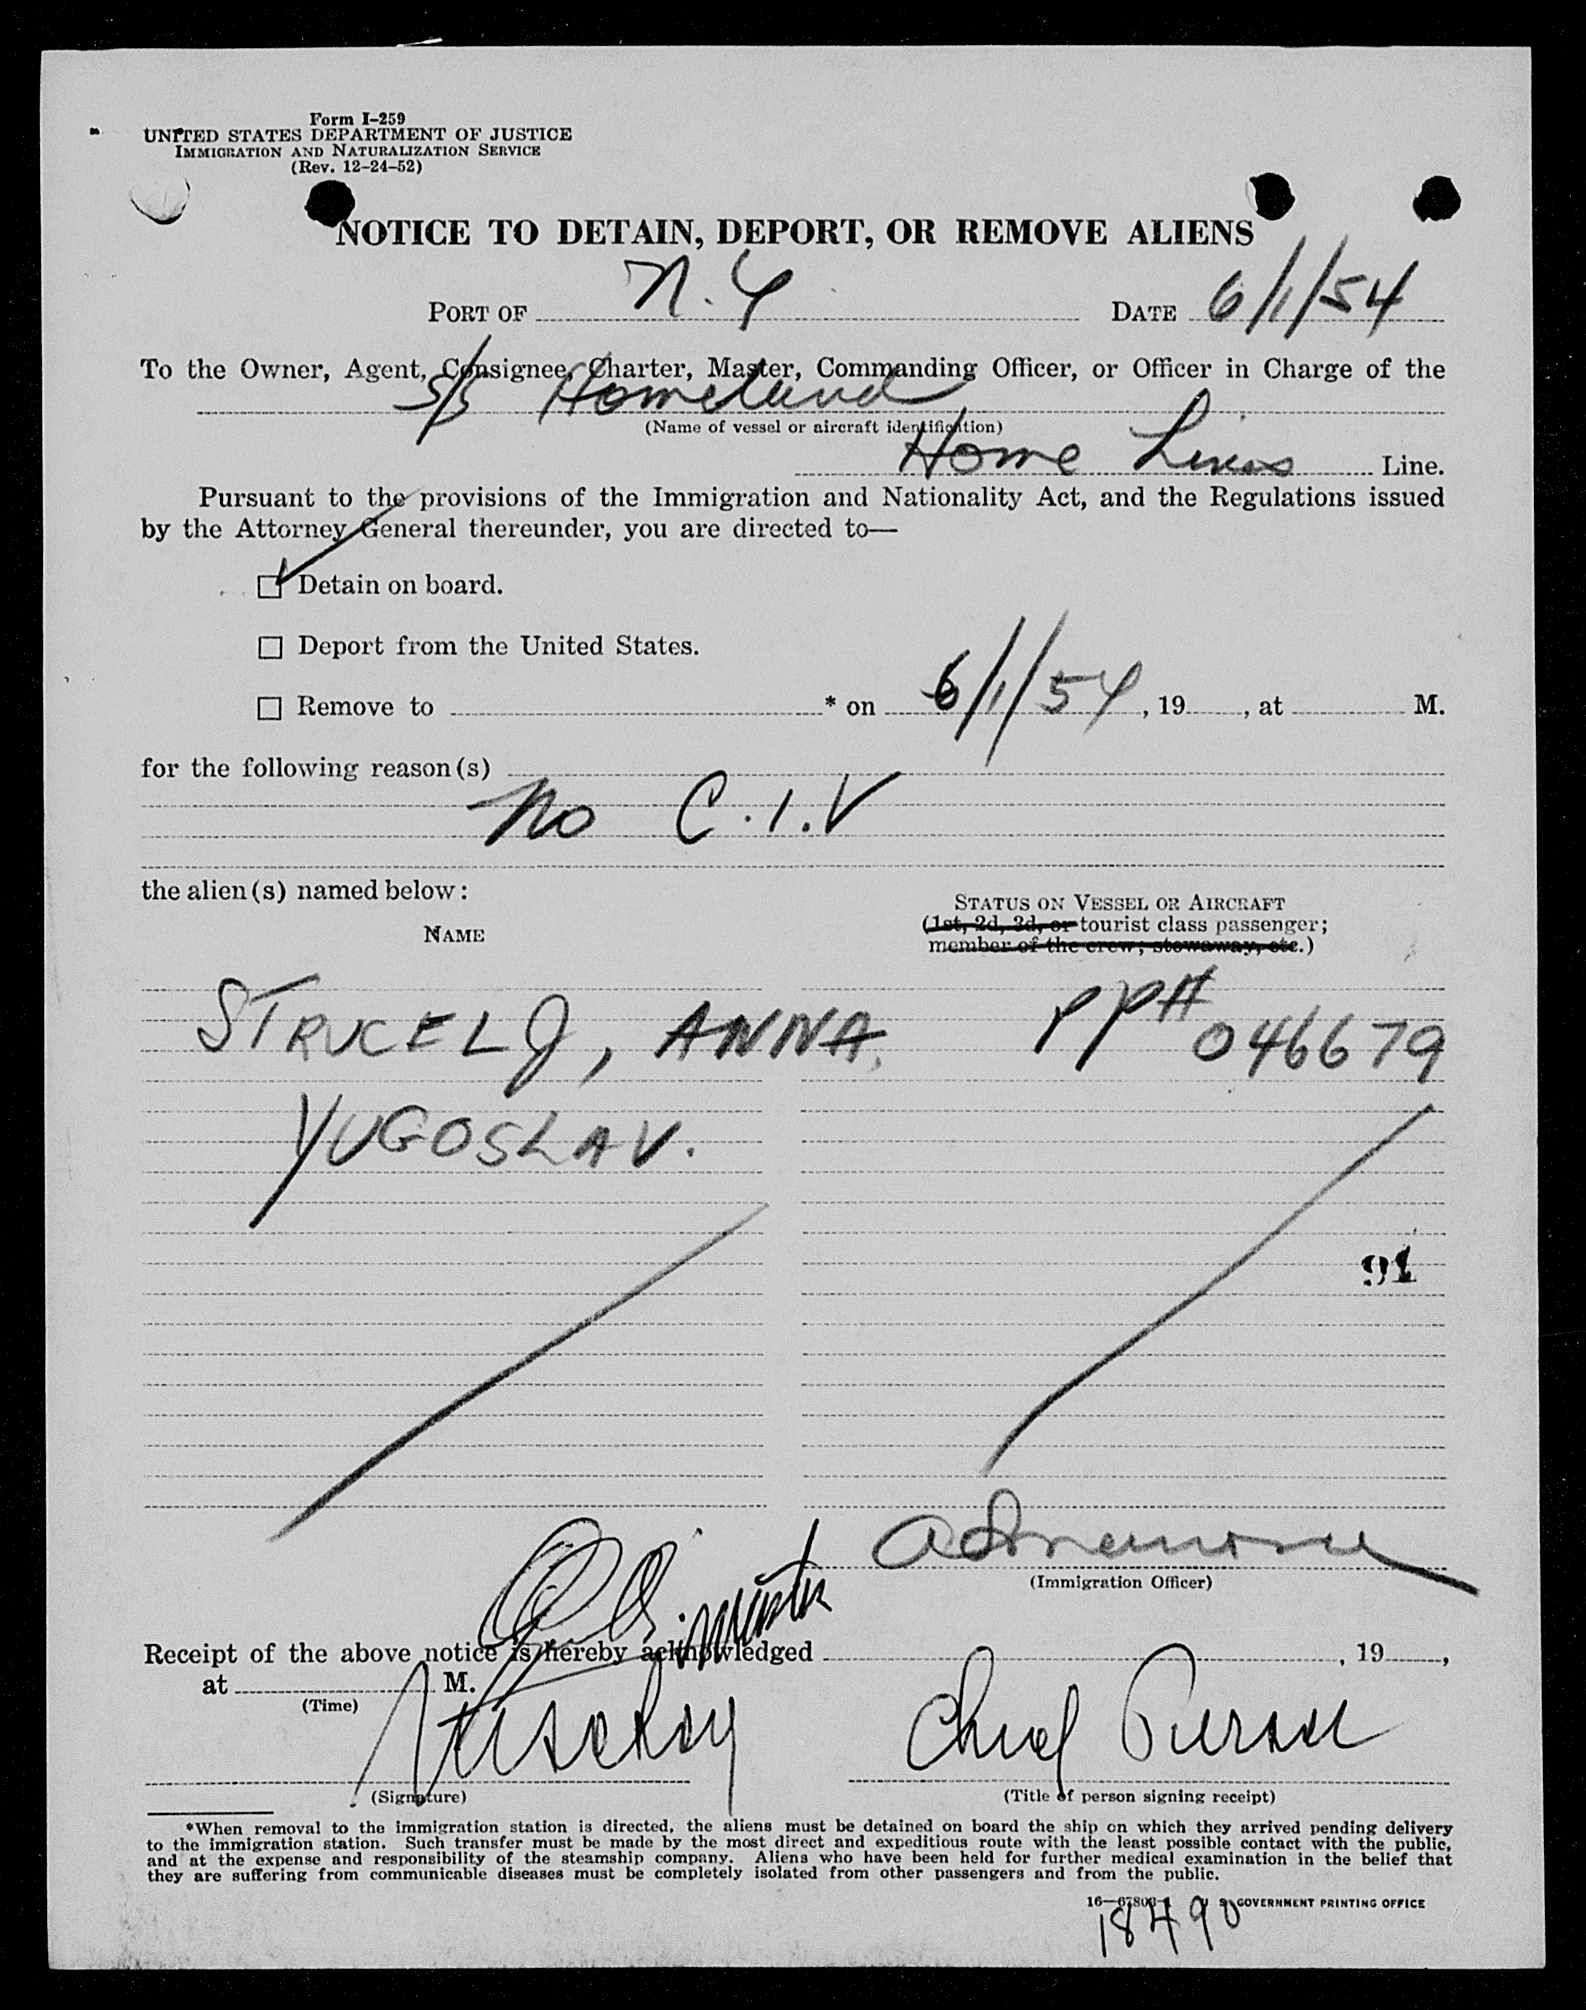 Form I-259
UNITED STATES DEPARTMENT OF JUSTICE
IMMIGRATION AND NATURALIZATION SERVICE
(Rev. 12-24-52)
NOTICE TO DETAIN, DEPORT, OR REMOVE ALIENS
PORT OF N.Y DATE 6/1/54
To the Owner, Agent, Consignee, Charter, Master, Commanding Officer, or Officer in Charge of the
S/S Homeland
(Name of vessel or aircraft identification)
Home Lines Line.
Pursuant to the provisions of the Immigration and Nationality Act, and the Regulations issued
by the Attorney General thereunder, you are directed to—
Detain on board.
Deport from the United States.
Remove to * on 6/1/54, 19 , at M.
for the following reason(s)
No C.I.V
the alien(s) named below:
STATUS ON VESSEL OR AIRCRAFT
(1st, 2d, 3d, or tourist class passenger;
NAME
member of the crew; stowaway, etc.)
STRUCELJ, ANNA. PP# 046679
YUGOSLAV.
91
(Immigration Officer)
master
Receipt of the above notice is hereby acknowledged , 19 ,
at M.
(Time)
Chief Purser
(Signature) (Title of person signing receipt)
*When removal to the immigration station is directed, the aliens must be detained on board the ship on which they arrived pending delivery
to the immigration station. Such transfer must be made by the most direct and expeditious route with the least possible contact with the public,
and at the expense and responsibility of the steamship company. Aliens who have been held for further medical examination in the belief that
they are suffering from communicable diseases must be completely isolated from other passengers and from the public.
GOVERNMENT PRINTING OFFICE
18490